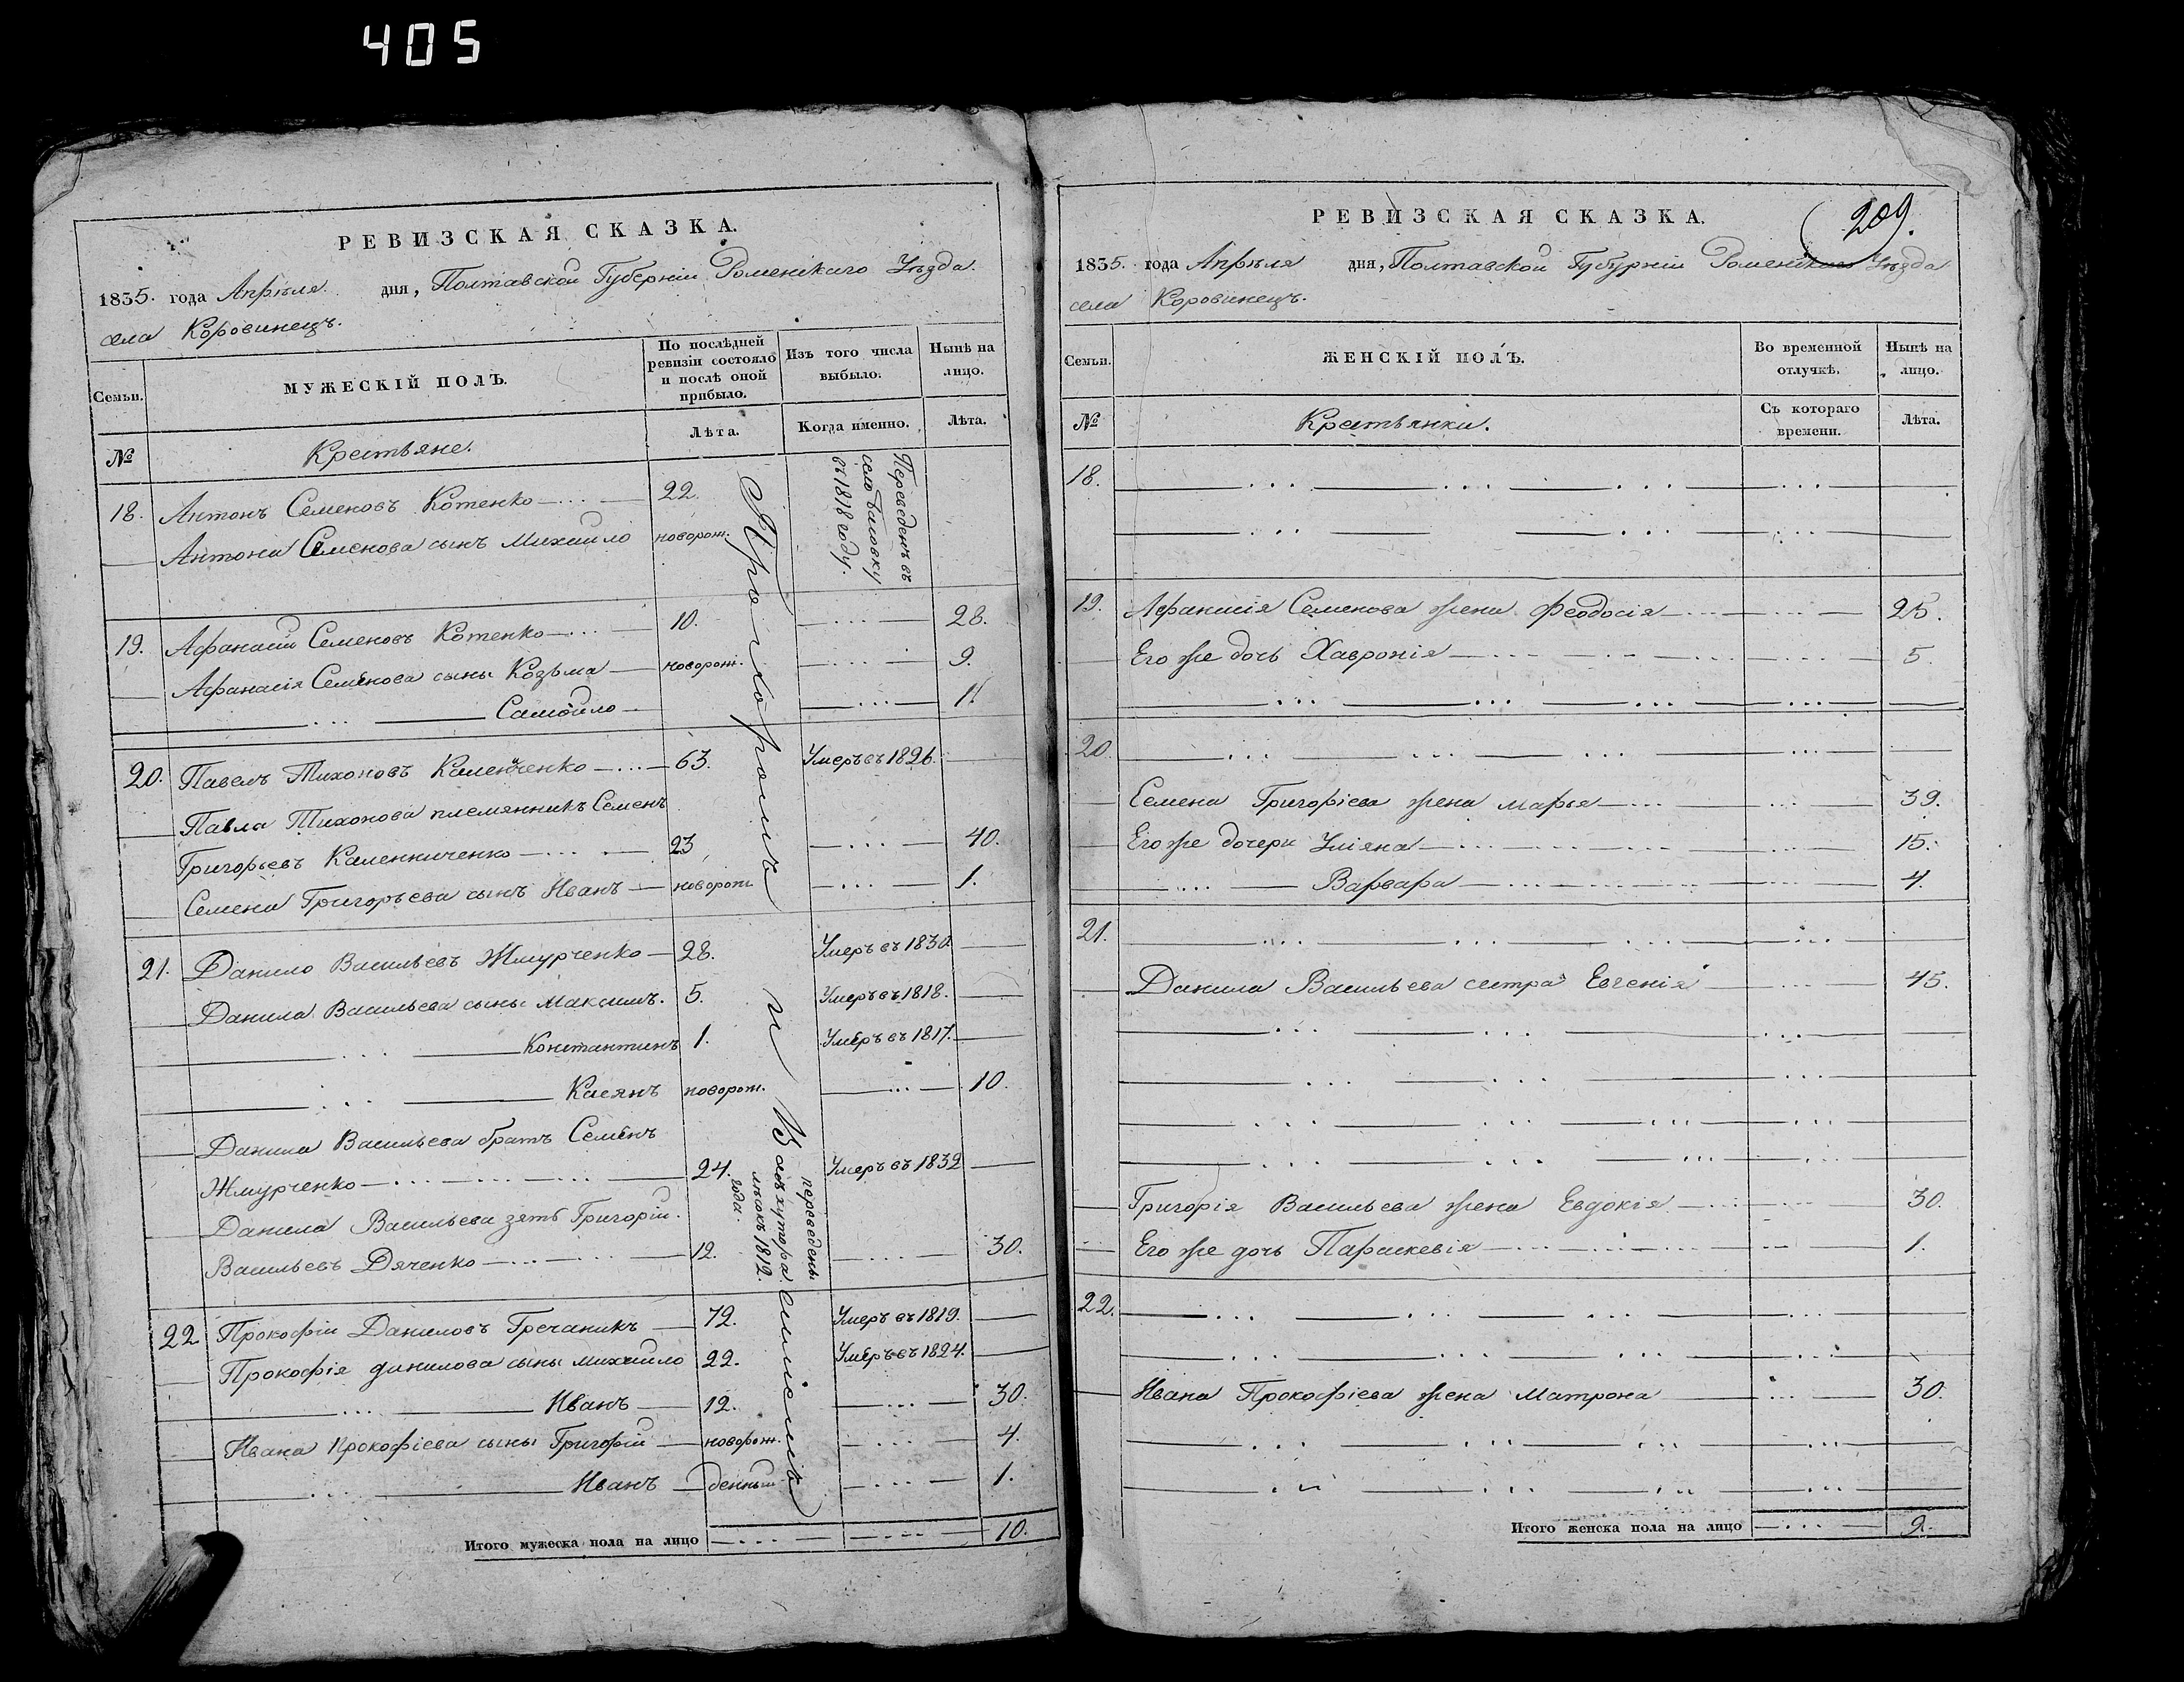 405
РЕВИЗСКАЯ СКАЗКА.
1835. года Апрѣля дня, Полтавской Губерніи Роменскаго Уѣзда.
села Коровинецъ.
Семьи.
МУЖЕСКІЙ ПОЛЪ.
По послѣдней ревизіи состояло и послѣ оной прибыло.
Изъ того числа выбыло.
Нынѣ на лицо.
№
Крестьяне.
Лѣта.
Когда именно.
Лѣта.
18. Антонъ Семеновъ Котенко 22.
Антона Семенова сынъ Михайло новорож.
Переведенъ въ
село
въ 1818 году.
19. Афанасій Семеновъ Котенко 10. 28.
Афанасія Семенова сыны Козьма новорож. 9.
Самойло 1.
20. Павелъ Тихоновъ Каленченко 63. Умеръ въ 1826.
Павла Тихонова племянникъ Семенъ
Григорьевъ Каленниченко 23. 40.
Семена Григорьева сынъ Иванъ новорож 1.
21. Данило Васильевъ Жмурченко 28. Умеръ въ 1830.
Данила Васильева сыны Максимъ. 5. Умеръ въ 1818.
Константинъ 1. Умеръ въ 1817.
Касянъ новорож. 10.
Данила Васильева братъ Семенъ
Жмурченко 24. Умеръ въ 1832
Данила Васильева зять Григорій
Васильевъ Дяченко 12. 30.
переведенъ
хутора
1812.
года.
22 Прокофій Даниловъ Гречаникъ 72. Умеръ въ 1819.
Прокофія Данилова сыны Михайло 22. Умеръ въ 1824.
Иванъ 12. 30.
Ивана Прокофіева сыны Григорій новорож. 4.
Иванъ денный 1.
Итого мужеска пола на лицо 10.
Прохоромъ и
209.
РЕВИЗСКАЯ СКАЗКА.
1835. года Апрѣля дня, Полтавской Губерніи Роменскаго Уѣзда
села Коровинецъ.
Семьи.
ЖЕНСКІЙ ПОЛЪ.
Во временной отлучкѣ.
Нынѣ на лицо.
№
Крестьянки.
Съ котораго времени.
Лѣта.
18.
19. Афанасія Семенова жена Феодосія 25.
Его же дочь Хавронія 5.
20.
Семена Григоріева жена Марья 39.
Его же дочери Уліяна 15.
Варвара 4.
21.
Данила Васильева сестра Евгенія 45.
Григорія Васильева жена Евдокія 30.
Его же дочь Параскевія 1.
22.
Ивана Прокофіева жена Матрона 30.
Итого женска пола на лицо 9.